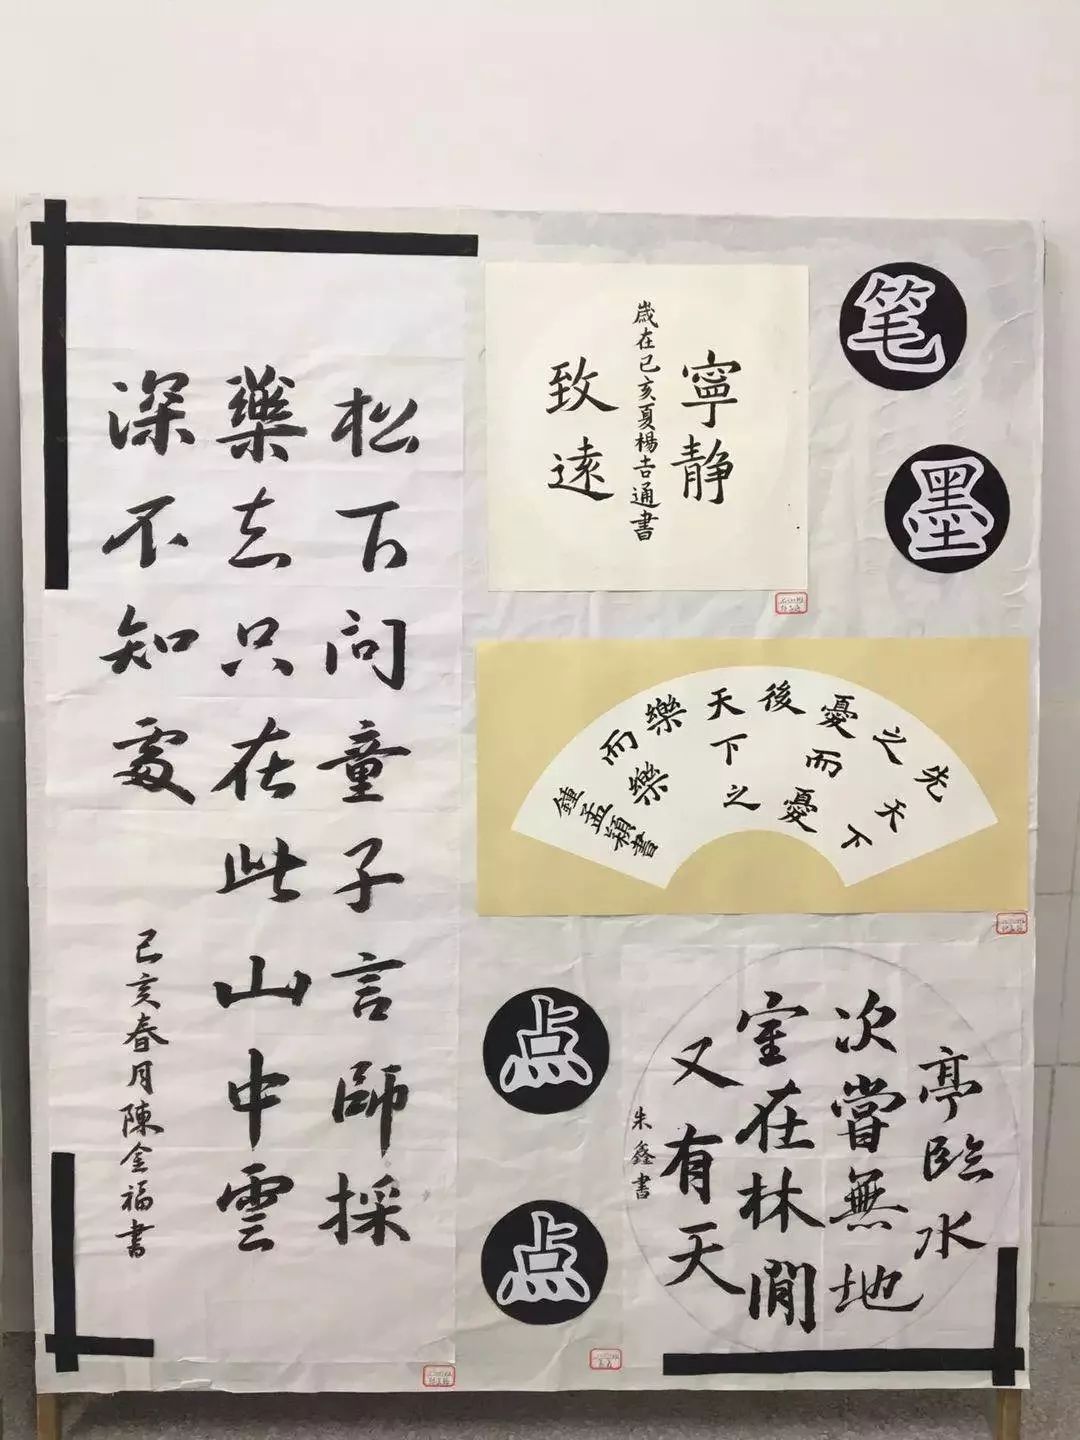 笔
墨
点
点
松下问童子言師採
藥去只在此山中雲
深不知處
己亥春月陳金福書
寧静
致遠
歳在己亥夏楊吉通書
先天下
之
憂而憂
後
天下之
樂
而樂
鍾孟穎書
亭臨水
次嘗無地
室在林間
又有天
朱鑫書